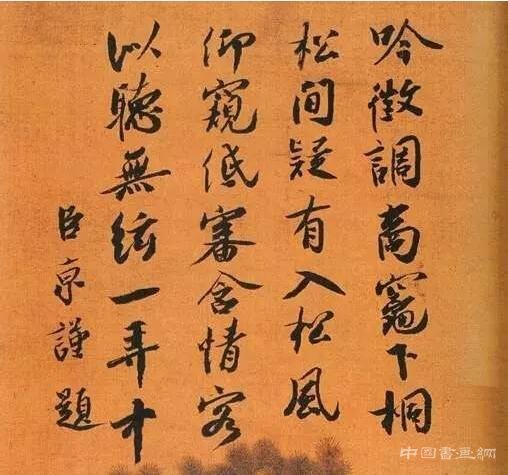 吟徵調商竈下桐
松間疑有入松風
仰窺低審含情客
以聽無絃一弄中
臣京謹題
中國書畫網